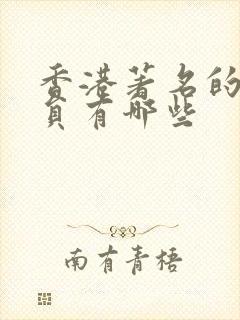 香港著名的
员有哪些
南有青梧